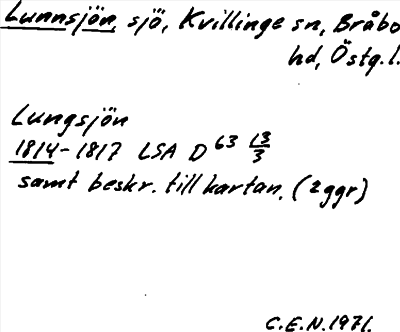 Lunnsjön, sjö, Kvillinge sn, Bråbo
hd, Östg.l.
Lungsjön
1814-1817 LSA D 63 13/3
samt beskr. till kartan. (2ggr)
C.E.N. 1971.